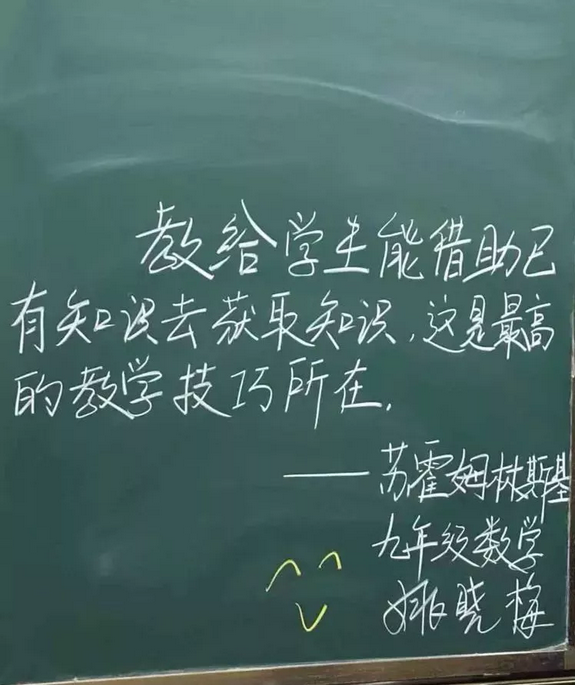 教给学生能借助已
有知识去获取知识,这是最高
的教学技巧所在.
——苏霍姆林斯基
九年级数学
姚晓梅